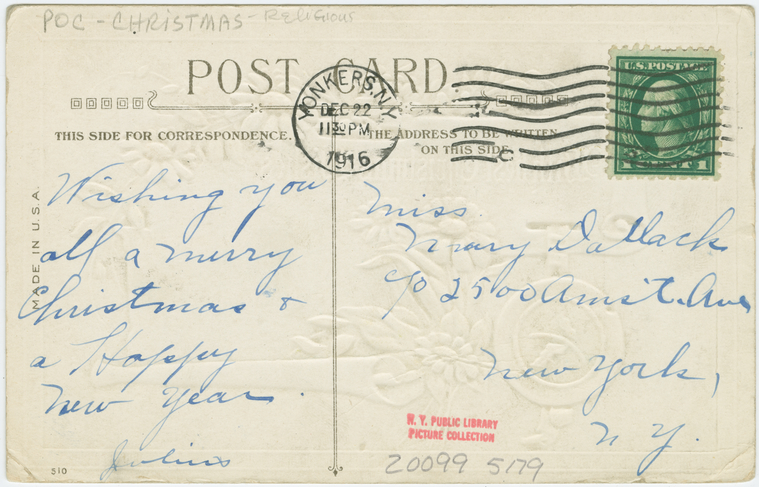 POC - CHRISTMAS - Religious
POST CARD
YONKERS, N.Y.
DEC 22
11 30 PM
1916
U.S. POSTAGE
1 1
THIS SIDE FOR CORRESPONDENCE.
THE ADDRESS TO BE WRITTEN
ON THIS SIDE.
MADE IN U.S.A.
Wishing you
all a merry
Christmas &
a Happy
New Year.
Julius
Miss
Mary Dallack
c/o 2500 Amst. Ave
New York,
N.Y.
N. Y. PUBLIC LIBRARY
PICTURE COLLECTION
20099 5179
510